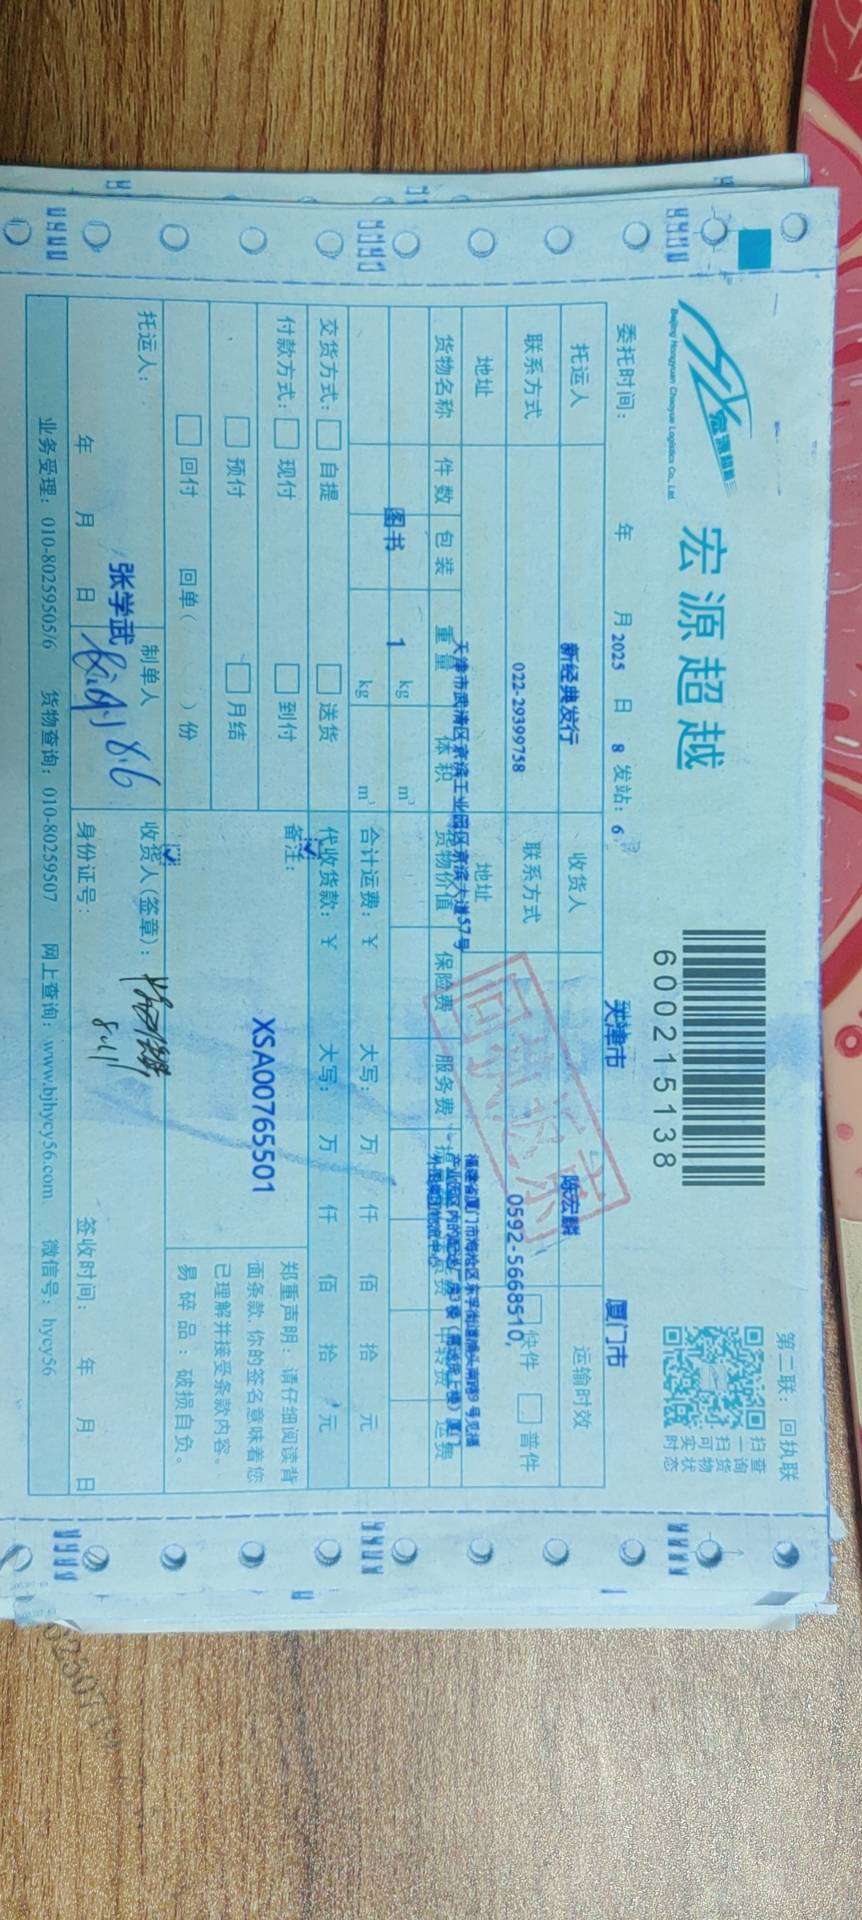 第二联：回执联
宏源超越
Beijing Hongyuan Chaoyue Logistics Co., Ltd
600215138
扫一扫可实时
查询货物状态
委托时间： 年 月 2025 日 8 发站：6 天津市 厦门市
托运人 新经典发行 收货人 陈宏麟 运输时效
联系方式 022-29399758 联系方式 0592-5668510, 快件 普件
地址 天津市武清区京滨工业园区京滨大道57号 地址
福建省厦门市海沧区
货物名称 件数 包装 重量 体积 货物价值 保险费 服务费 中转费 运费
图书 1 kg m³
kg m³
合计运费：¥ 大写： 万 仟 佰 拾 元
交货方式： 自提 送货 代收货款：¥ 大写： 万 仟 佰 拾 元
付款方式： 现付 到付 备注：
预付 月结 XSA00765501
回付 回单（ ）份
郑重声明：请仔细阅读背
面条款，你的签名意味着您
已理解并接受条款内容。
易碎品：破损自负。
回执返京
托运人： 张学武 制单人 8.6 收货人(签章)：
年 月 日 身份证号： 8.11 签收时间： 年 月 日
业务受理：010-80259505/6 货物查询：010-80259507 网上查询：www.bjhycy56.com 微信号：hycy56